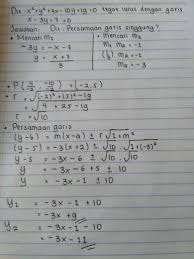 Dik x² + y² + 4x - 10y + 19 = 0 tegak lurus dengan garis
x - 3y + 7 = 0
Jawaban: Dit: Persamaan garis singgung?
• Mencari m₁
-3y = -x - 7
y = x + 7 / 3
• Mencari m₂
m₁ m₂ = -1
(1/3) m₂ = -1
m₂ = -3
P = (-2, 5)
r = √(-2)² + (5)² - 19
r = √4 + 25 - 19
r = √10
• Persamaan garis
(y - b) = m(x - a) ± r √1 + m²
(y - 5) = -3(x + 2) ± √10 · √1 + (-3)²
y - 5 = -3x - 6 ± √10 · √10
y = -3x - 6 + 5 ± 10
y = -3x - 1 ± 10
y₁ = -3x - 1 + 10
= -3x + 9
y₂ = -3x - 1 - 10
= -3x - 11